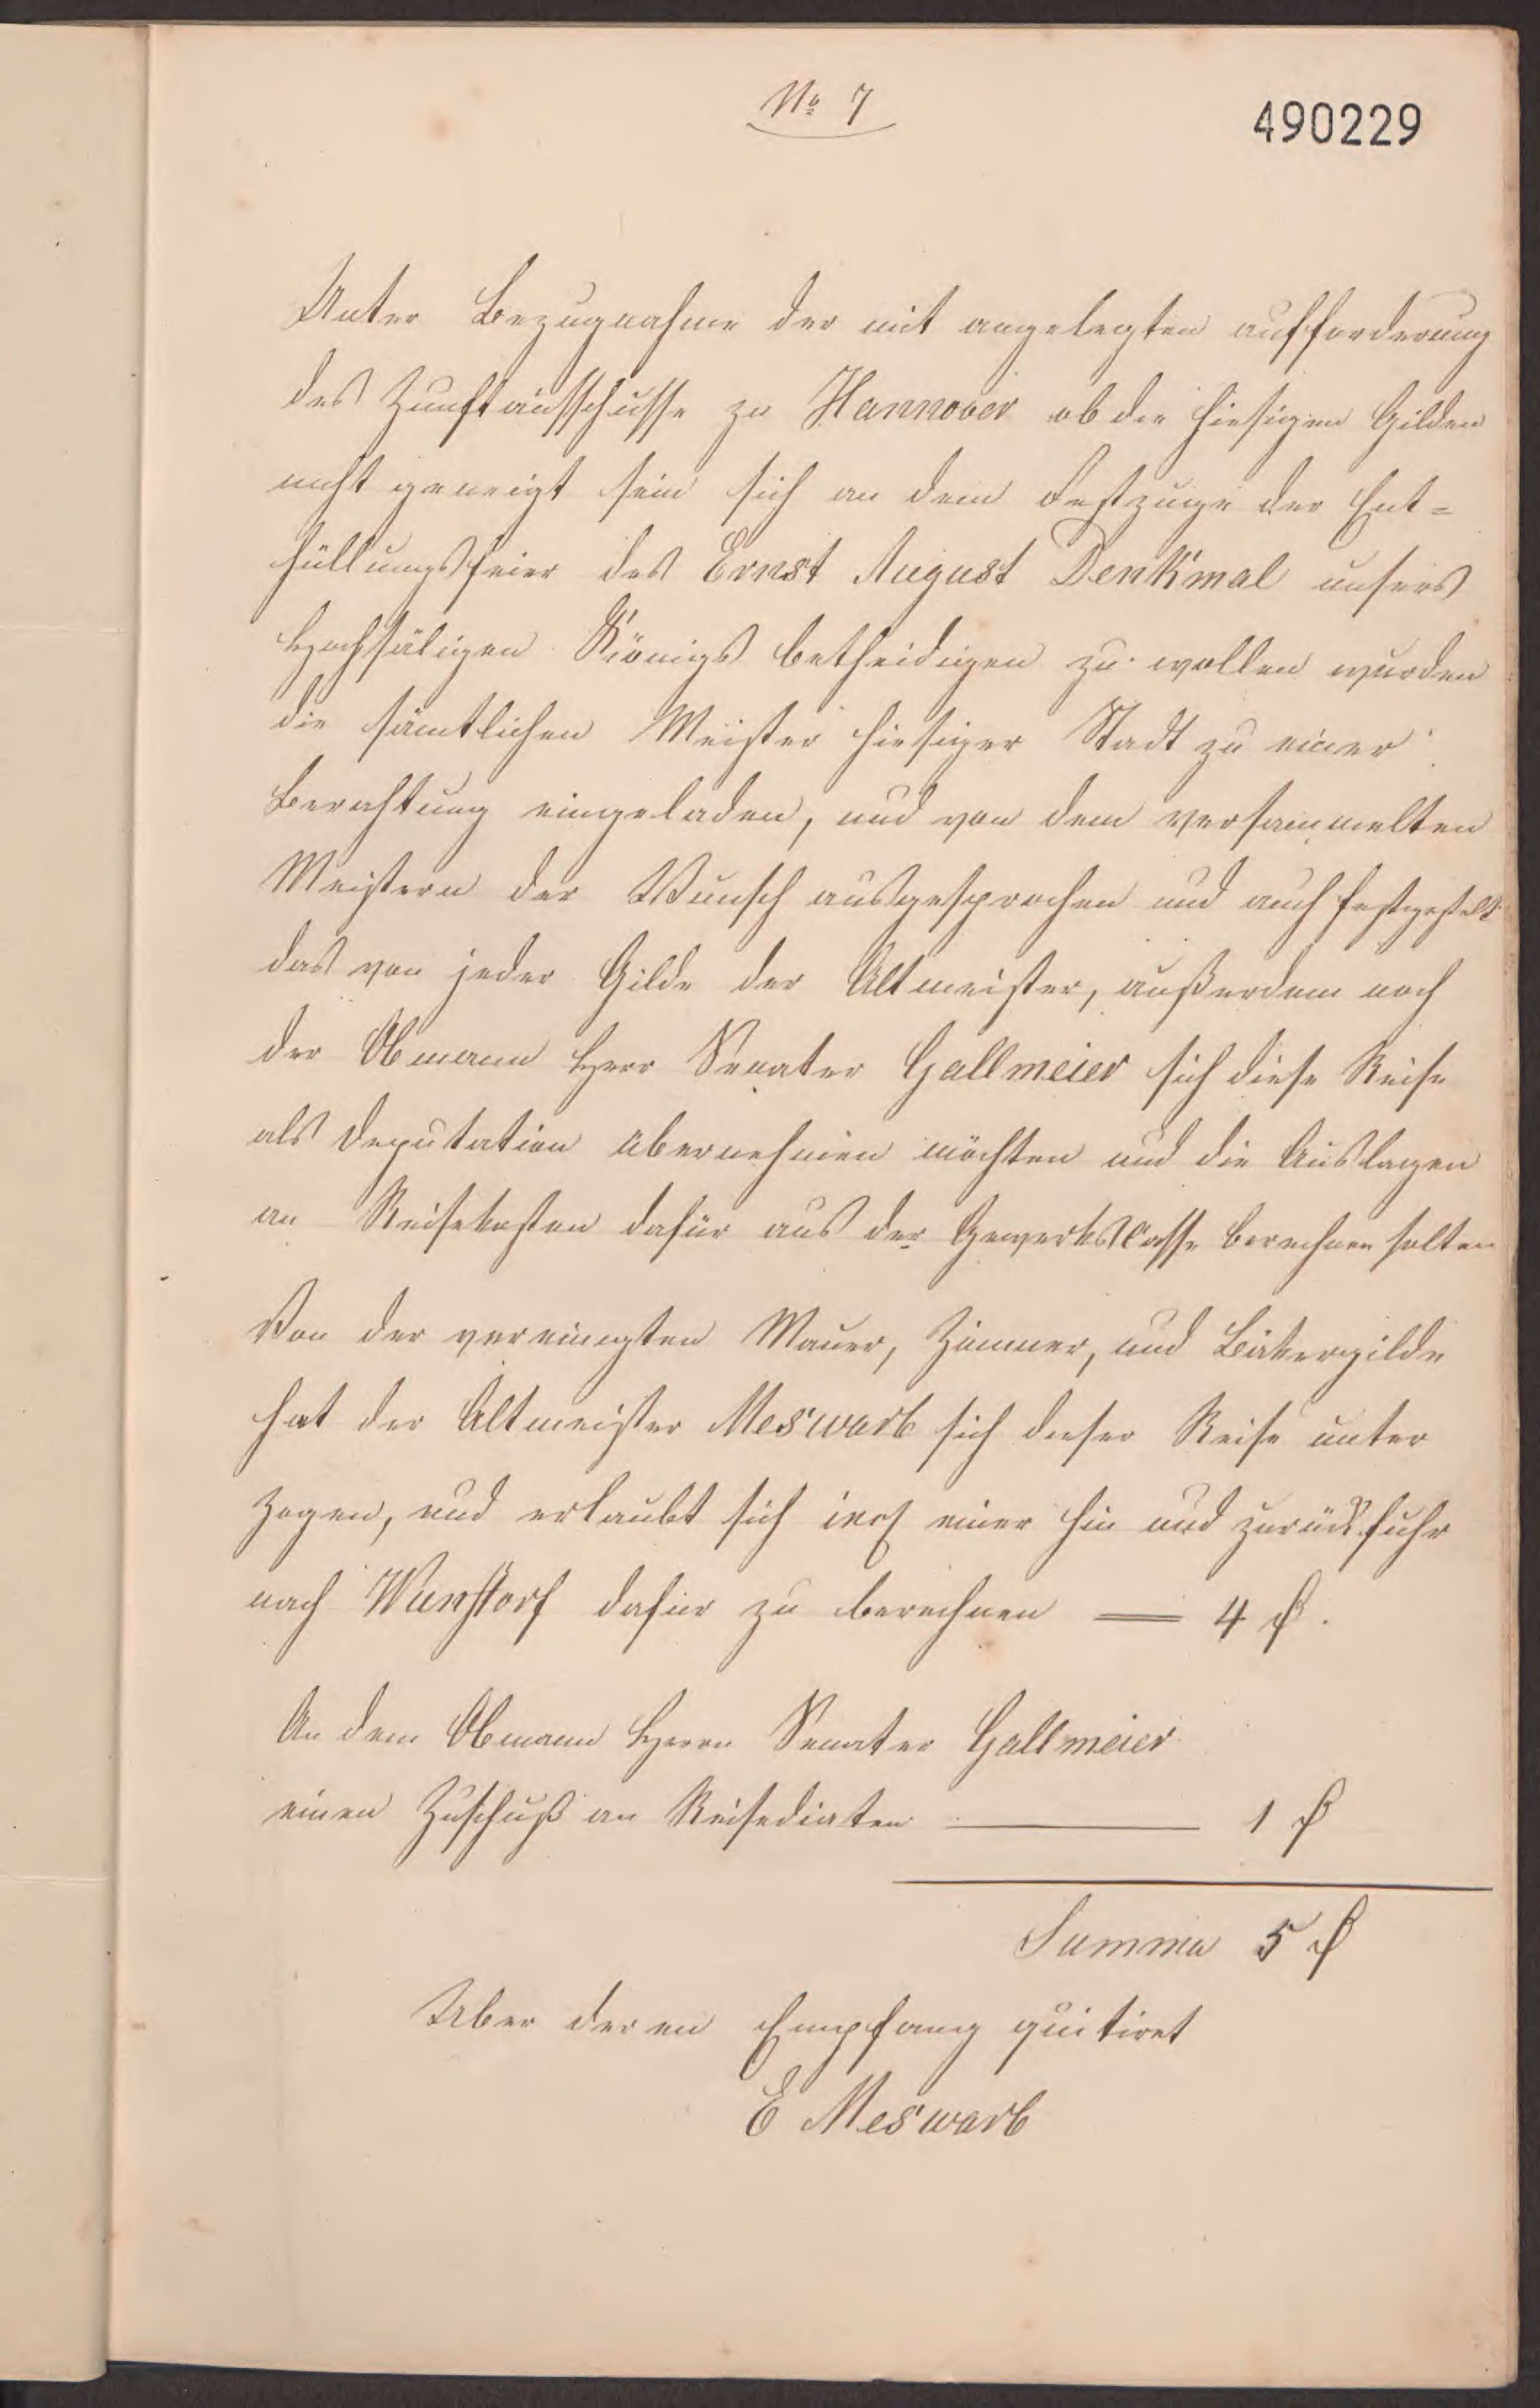 No 7
490229
Unter Bezugnahme der mit angelegten aufforderung
des Zunftausschusse zu Hannover ob die hiesigen Gilden
nicht geneigt sein sich an dem Festzuge der Ent=
hüllungsfeier des Ernst August Denkmal unsers
Hochsäligen Königs betheidigen zu wollen wurden
die sämtlichen Meister hiesiger Stadt zu einer
Berathung eingeladen, und von dem versammelten
Meistern der Wunsch ausgesprochen und auch festgestelt
das von jeder Gilde der Altmeister, außerdem noch
der Obmann Herr Senater Gallmeier sich diese Reise
als Deputation übernehmen möchten und die Auslagen
an Reisekosten dafür aus der Gewerkscasse berechnen solten
Von der vereinigten Mauer, Zimmer, und Bäkergilde
hat der Altmeister Meswarb sich dieser Reise unter
zogen, und erlaubt sich einer hin und zurückfuhr
nach Wunstorf dafür zu berechnen — 4 ₰.
An dem Obmann Herrn Senater Gallmeier
einen Zuschuß an Reisediaten — 1 ₰
Summa 5 ₰
Uber deren Empfang quitiret
E Meswarb